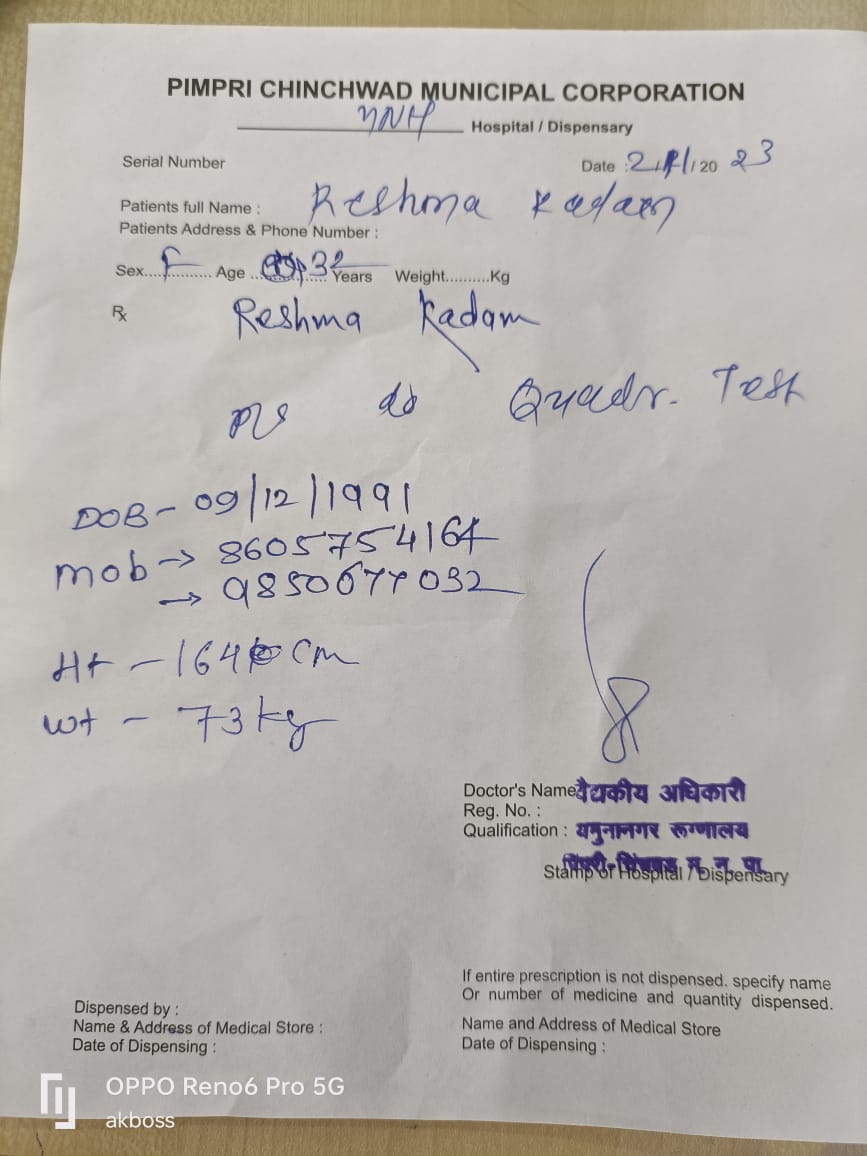 PIMPRI CHINCHWAD MUNICIPAL CORPORATION
YNH Hospital / Dispensary
Serial Number
Date : /20 23
Patients full Name : Reshma Kadam
Patients Address & Phone Number :
Sex....F.... Age ....32.... Years Weight..........Kg
Rx
Reshma Kadam
do Quadr. Test
DOB - 09/12/1991
mob → 8605754164
→
Ht - 164 cm
wt - 73 kg
Doctor's Name वैद्यकीय अधिकारी
Reg. No. :
Qualification : यमुनानगर रुग्णालय
पिंपरी-चिंचवड म. न. पा.
Stamp of Hospital / Dispensary
If entire prescription is not dispensed. specify name
Or number of medicine and quantity dispensed.
Dispensed by :
Name & Address of Medical Store :
Date of Dispensing :
Name and Address of Medical Store
Date of Dispensing :
OPPO Reno6 Pro 5G
akboss